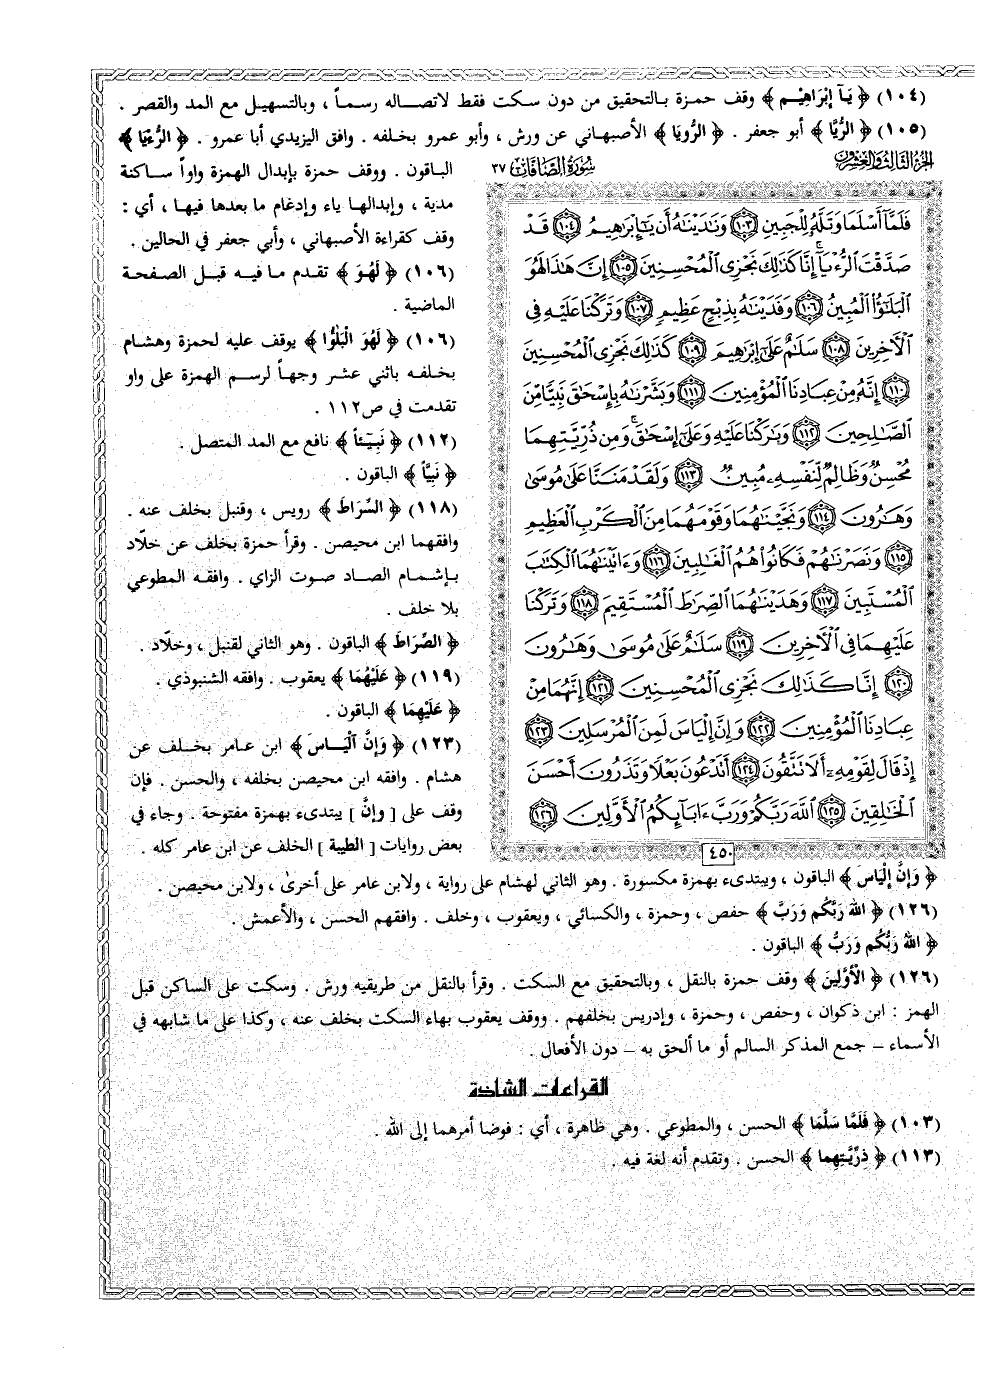 (١٠٤) ﴿ يَآ إِبْرَاهِيْم ﴾ وقف حمزة بالتحقيق من دون سكت فقط لاتصاله رسماً ، وبالتسهيل مع المد والقصر .
(١٠٥) ﴿ الرُّيَّا ﴾ أبو جعفر . ﴿ الرُّويَا ﴾ الأصبهاني عن ورش ، وأبو عمرو بخلفه . وافق اليزيدي أبا عمرو . ﴿ الرُّءْيَا ﴾
الباقون . ووقف حمزة بإبدال الهمزة واواً ساكنة
مدية ، وإبدالها ياء وإدغام ما بعدها فيها ، أي :
وقف كقراءة الأصبهاني ، وأبي جعفر في الحالين .
(١٠٦) ﴿ لَهْوَ ﴾ تقدم ما فيه قبل الصفحة
الماضية .
(١٠٦) ﴿ لَهُوَ الْبَلَٰؤُا ﴾ يوقف عليه لحمزة وهشام
بخلفه باثني عشر وجهاً لرسم الهمزة على واو
تقدمت في ص١١٢ .
(١١٢) ﴿ نَبِيْـئاً ﴾ نافع مع المد المتصل .
﴿ نَبِيًّا ﴾ الباقون .
(١١٨) ﴿ السِّرَاطَ ﴾ رويس ، وقنبل بخلف عنه .
وافقهما ابن محيصن . وقرأ حمزة بخلف عن خلّاد
بإشمام الصاد صوت الزاي . وافقه المطوعي
بلا خلف .
﴿ الصِّرَاطَ ﴾ الباقون . وهو الثاني لقنبل ، وخلّاد .
(١١٩) ﴿ عَلَيْهُمَا ﴾ يعقوب . وافقه الشنبوذي .
﴿ عَلَيْهِمَا ﴾ الباقون .
(١٢٣) ﴿ وَإِنَّ اَلْيَاسَ ﴾ ابن عامر بخلف عن
هشام . وافقه ابن محيصن بخلفه ، والحسن . فإن
وقف على [ وإنَّ ] يبتدىء بهمزة مفتوحة . وجاء في
بعض روايات [ الطيبة ] الخلف عن ابن عامر كله .
الجزء الثالث والعشرون
سورة الصافات ٣٧
فَلَمَّآ أَسْلَمَا وَتَلَّهُۥ لِلْجَبِينِ ١٠٣ وَنَٰدَيْنَٰهُ أَن يَٰٓإِبْرَٰهِيمُ ١٠٤ قَدْ
صَدَّقْتَ ٱلرُّءْيَآ ۚ إِنَّا كَذَٰلِكَ نَجْزِى ٱلْمُحْسِنِينَ ١٠٥ إِنَّ هَٰذَا لَهُوَ
ٱلْبَلَٰٓؤُا۟ ٱلْمُبِينُ ١٠٦ وَفَدَيْنَٰهُ بِذِبْحٍ عَظِيمٍ ١٠٧ وَتَرَكْنَا عَلَيْهِ فِى
ٱلْأَخِرِينَ ١٠٨ سَلَٰمٌ عَلَىٰٓ إِبْرَٰهِيمَ ١٠٩ كَذَٰلِكَ نَجْزِى ٱلْمُحْسِنِينَ
١١٠ إِنَّهُۥ مِنْ عِبَادِنَا ٱلْمُؤْمِنِينَ ١١١ وَبَشَّرْنَٰهُ بِإِسْحَٰقَ نَبِيًّا مِّنَ
ٱلصَّٰلِحِينَ ١١٢ وَبَٰرَكْنَا عَلَيْهِ وَعَلَىٰٓ إِسْحَٰقَ ۚ وَمِن ذُرِّيَّتِهِمَا
مُحْسِنٌ وَظَالِمٌ لِّنَفْسِهِۦ مُبِينٌ ١١٣ وَلَقَدْ مَنَنَّا عَلَىٰ مُوسَىٰ
وَهَٰرُونَ ١١٤ وَنَجَّيْنَٰهُمَا وَقَوْمَهُمَا مِنَ ٱلْكَرْبِ ٱلْعَظِيمِ
١١٥ وَنَصَرْنَٰهُمْ فَكَانُوا۟ هُمُ ٱلْغَٰلِبِينَ ١١٦ وَءَاتَيْنَٰهُمَا ٱلْكِتَٰبَ
ٱلْمُسْتَبِينَ ١١٧ وَهَدَيْنَٰهُمَا ٱلصِّرَٰطَ ٱلْمُسْتَقِيمَ ١١٨ وَتَرَكْنَا
عَلَيْهِمَا فِى ٱلْأَخِرِينَ ١١٩ سَلَٰمٌ عَلَىٰ مُوسَىٰ وَهَٰرُونَ
١٢٠ إِنَّا كَذَٰلِكَ نَجْزِى ٱلْمُحْسِنِينَ ١٢١ إِنَّهُمَا مِنْ
عِبَادِنَا ٱلْمُؤْمِنِينَ ١٢٢ وَإِنَّ إِلْيَاسَ لَمِنَ ٱلْمُرْسَلِينَ ١٢٣
إِذْ قَالَ لِقَوْمِهِۦٓ أَلَا تَتَّقُونَ ١٢٤ أَتَدْعُونَ بَعْلًا وَتَذَرُونَ أَحْسَنَ
ٱلْخَٰلِقِينَ ١٢٥ ٱللَّهَ رَبَّكُمْ وَرَبَّ ءَابَآئِكُمُ ٱلْأَوَّلِينَ ١٢٦
٤٥٠
﴿ وَإِنَّ إِلْيَاسَ ﴾ الباقون ، ويبتدىء بهمزة مكسورة . وهو الثاني لهشام على رواية ، ولابن عامر على أخرىٰ ، ولابن محيصن .
(١٢٦) ﴿ اللهَ رَبَّكُم وَرَبَّ ﴾ حفص ، وحمزة ، والكسائي ، ويعقوب ، وخلف . وافقهم الحسن ، والأعمش .
﴿ اللهُ رَبُّكُم وَرَبُّ ﴾ الباقون .
(١٢٦) ﴿ الْأَوَّلِينَ ﴾ وقف حمزة بالنقل ، وبالتحقيق مع السكت . وقرأ بالنقل من طريقيه ورش . وسكت على الساكن قبل
الهمز : ابن ذكوان ، وحفص ، وحمزة ، وإدريس بخلفهم . ووقف يعقوب بهاء السكت بخلف عنه ، وكذا على ما شابهه في
الأسماء – جمع المذكر السالم أو ما ألحق به – دون الأفعال .
القراءات الشاذة
(١٠٣) ﴿ فَلَمَّا سَلَّمَا ﴾ الحسن ، والمطوعي . وهي ظاهرة ، أي : فوضا أمرهما إلى الله .
(١١٣) ﴿ ذِرِّيَّتِهِما ﴾ الحسن . وتقدم أنه لغة فيه .